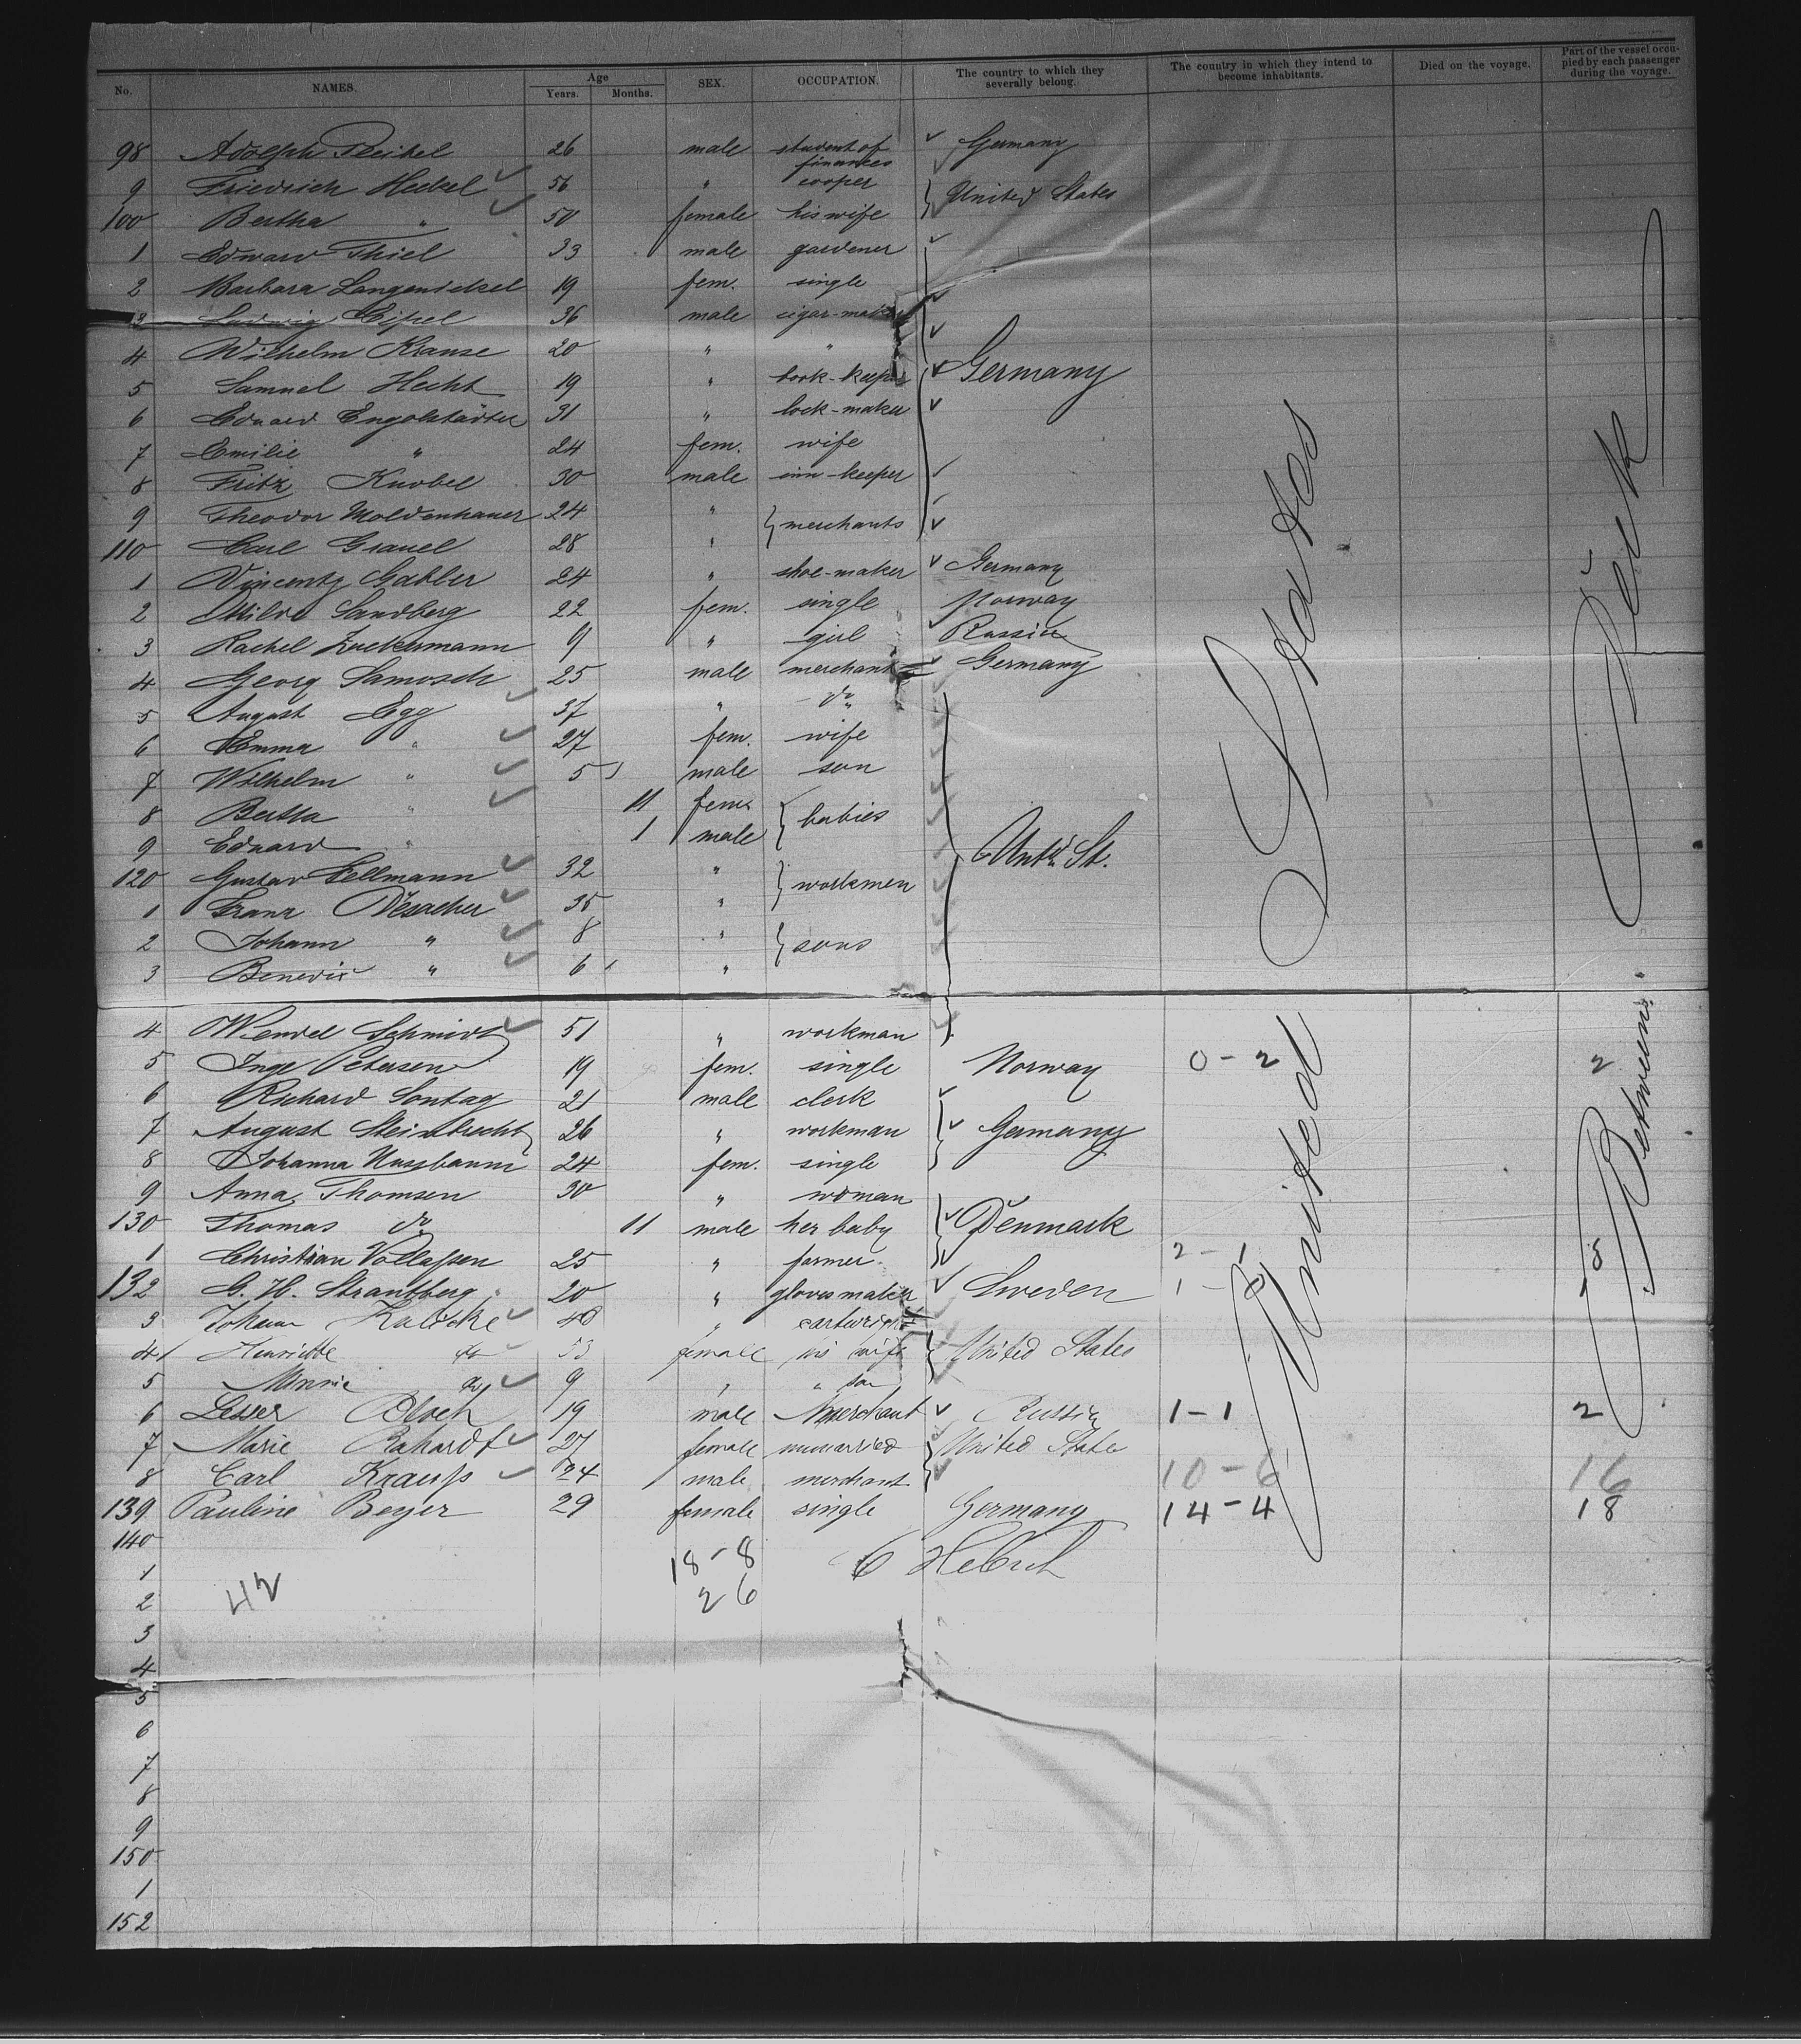 No. NAMES. Age Years. Months. SEX. OCCUPATION. The country to which they severally belong. The country in which they intend to become inhabitants. Died on the voyage. Part of the vessel occupied by each passenger during the voyage.
98 Adolph 26 male student of finances Germany
9 Friedrich Heckel 56 " cooper United States
100 Bertha " 50 female his wife
1 Edward Thiel 33 male gardener
2 Barbara Langenickel 19 fem. single
3 Ludwig 36 male cigar-maker
4 Wilhelm Krause 20 " "
5 Samuel Hecht 19 " book-keeper Germany
6 Eduard Engelstädter 31 " lock-maker
7 Emilie " 24 fem. wife
8 Fritz Knobel 30 male inn-keeper
9 Theodor Moldenhauer 24 " merchants
110 Carl Grauel 28 "
1 Vincentz Gabler 24 " shoe-maker Germany
2 Sandberg 22 fem. single Norway
3 Rachel Zuckermann 9 " girl Russia
4 Georg Samosch 25 male merchant Germany
5 August Egg 37 " do
6 Emma " 27 fem. wife
7 Wilhelm " 5 male son
8 Bertha " 11 fem. babies
9 Eduard " 1 male Untd. St.
120 Gustav Fellmann 32 " workmen
1 Franz Desacher 35 "
2 Johann " 8 " sons
3 " 6 "
4 Wendel Schmidt 51 " workman
5 Inge Petersen 19 fem. single Norway 0-2 2
6 Richard Sontag 21 male clerk
7 August Steinbrecht 26 " workman Germany
8 Johanna Nussbaum 24 fem. single
9 Anna Thomsen 30 " woman
130 Thomas do 11 male her baby Denmark
1 Christian 25 " farmer 2-1 3
132 Strantberg 20 " glovesmaker Sweden 1-0 1
3 Johann 48 " cartwright
4 Henriette do 53 female his wife United States
5 Minnie do 9 " "
6 Lesser Bloch 19 male Merchant Russia 1-1 2
7 Marie 27 female unmarried United State
8 Carl Krauss 24 male merchant 10-6 16
139 Pauline Beyer 29 female single Germany 14-4 18
140
1 18-8
2 42 26
3
4
5
6
7
8
9
150
1
152
United States
Betweens Deck